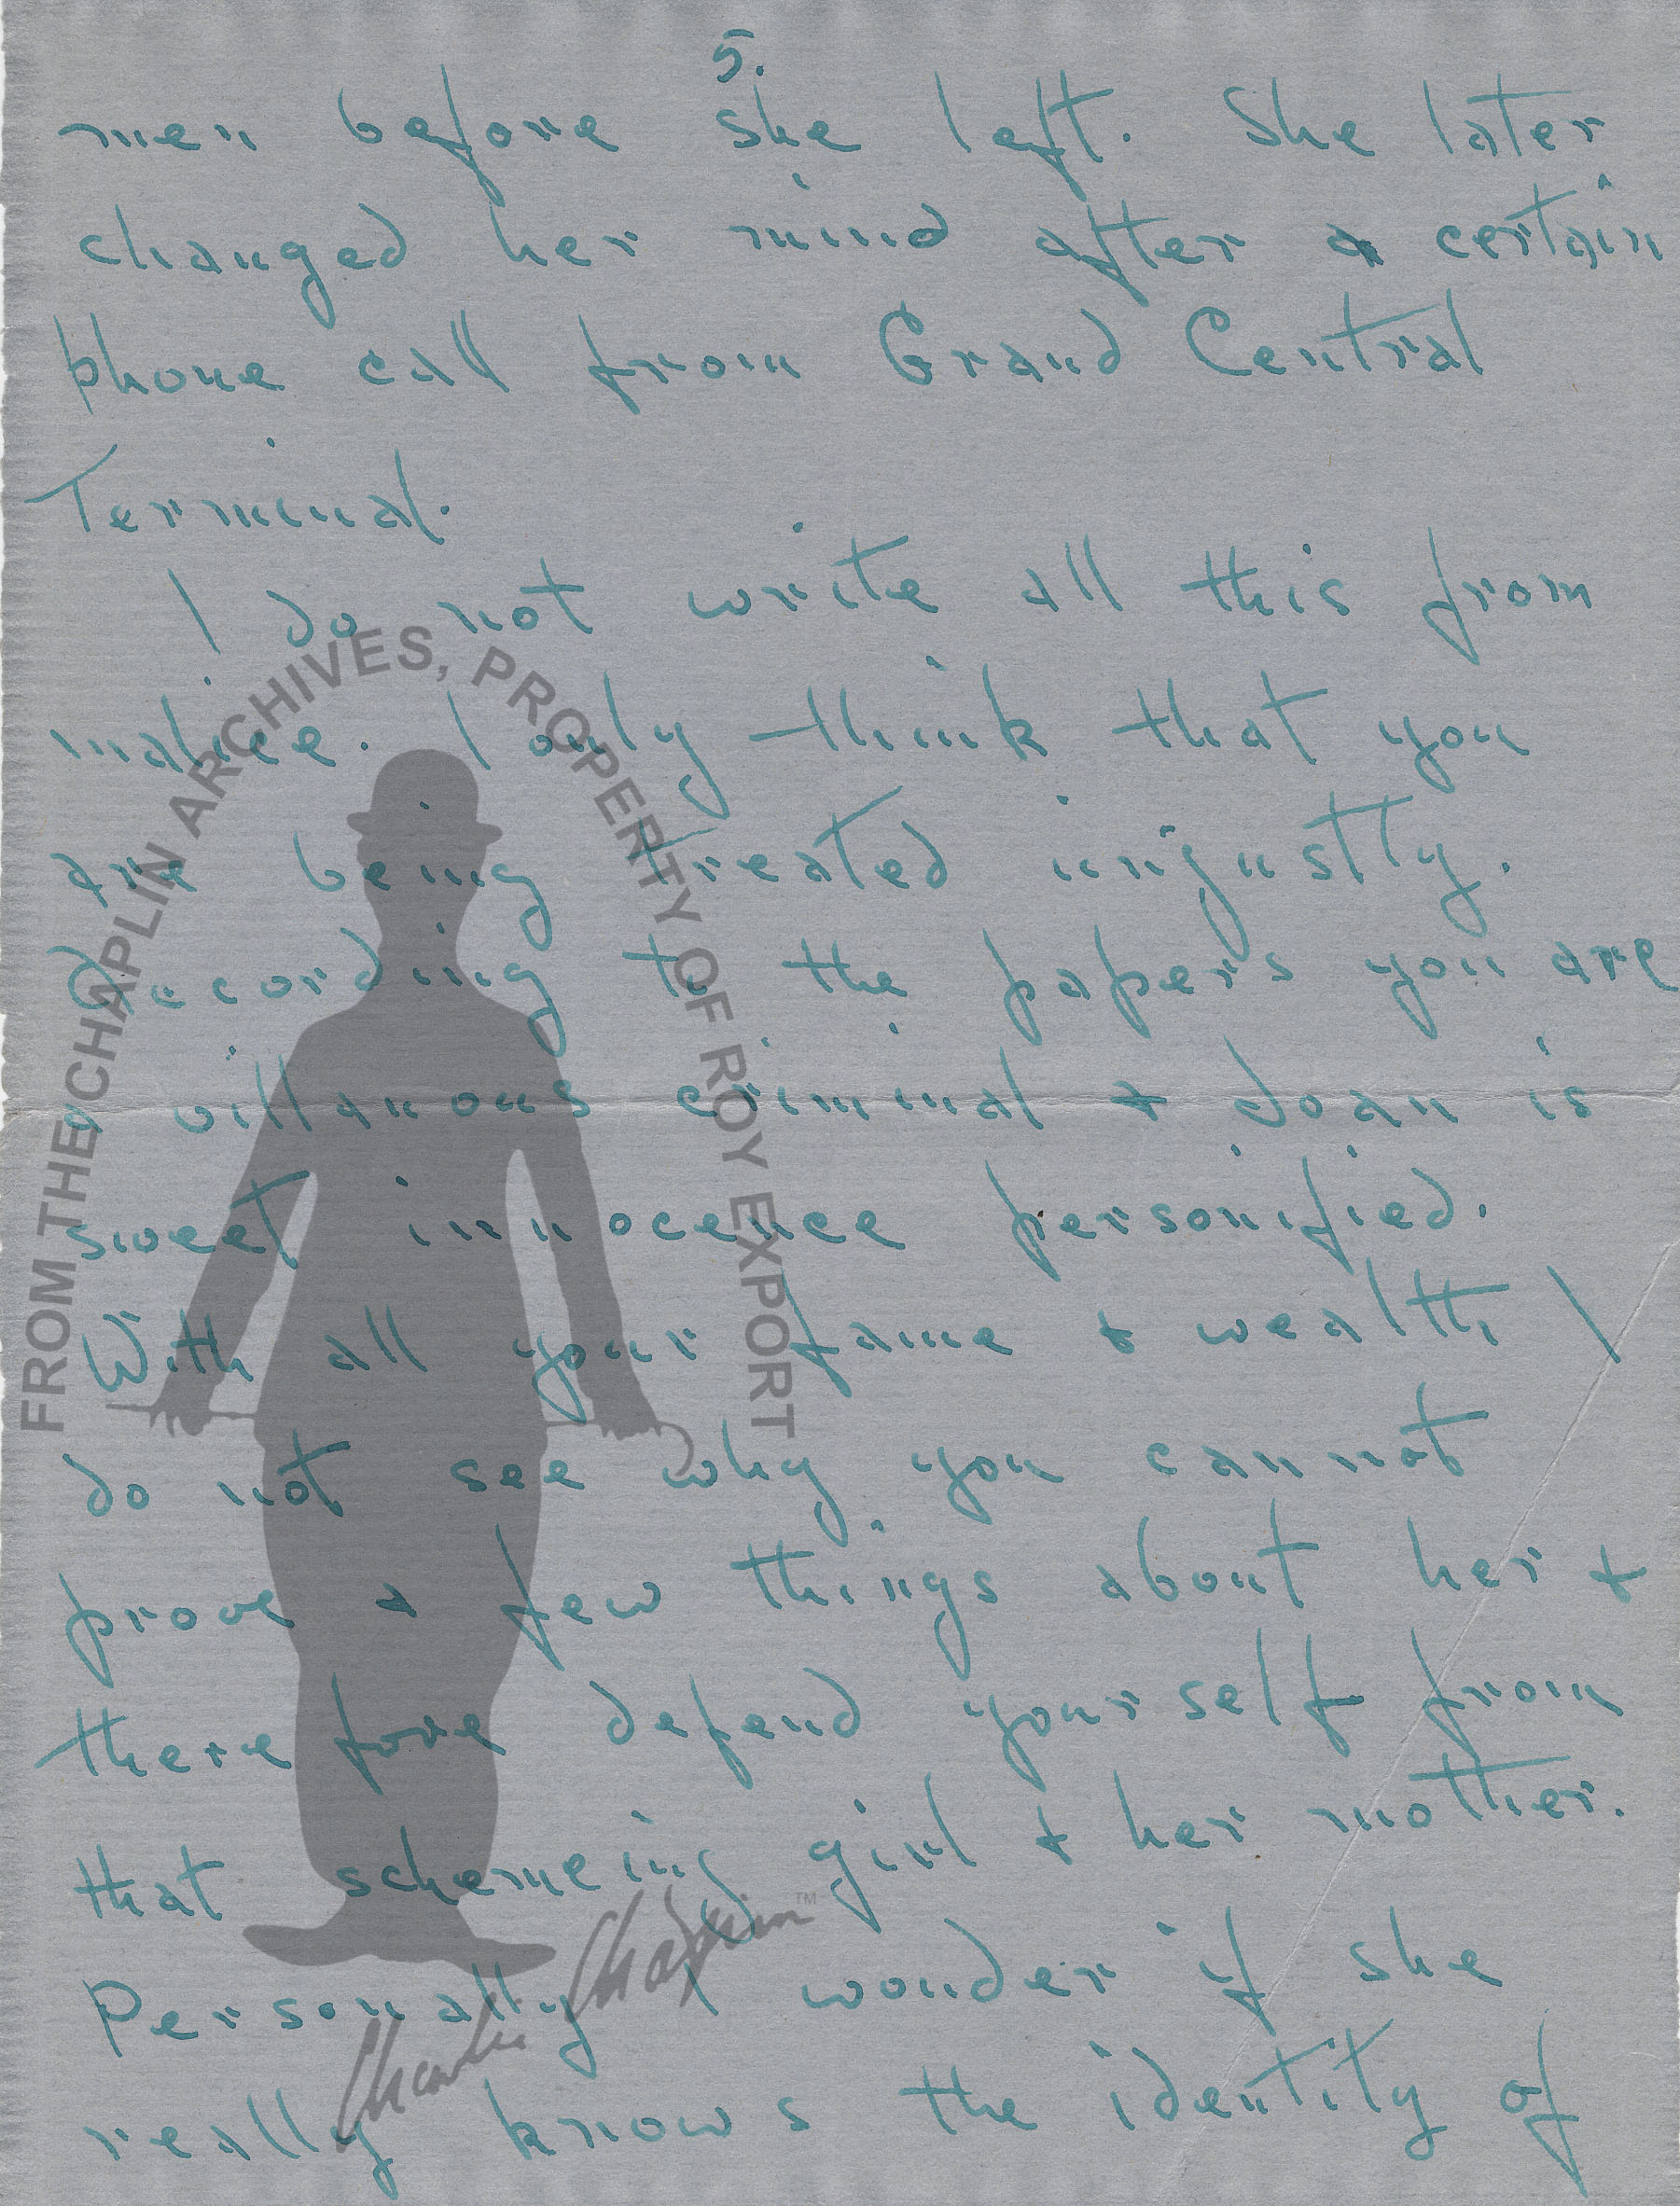 5.
men before she left. She later
changed her mind after a certain
phone call from Grand Central
Terminal.
I do not write all this from
malice. I only think that you
are being treated unjustly.
According to the papers you are
a villanous criminal & Joan is
sweet innocence personified.
With all your fame & wealth I
do not see why you cannot
prove a few things about her &
therefore defend yourself from
that schemeing girl & her mother.
Personally I wonder if she
really knows the identity of
FROM THE CHAPLIN ARCHIVES, PROPERTY OF ROY EXPORT
Charlie Chaplin™